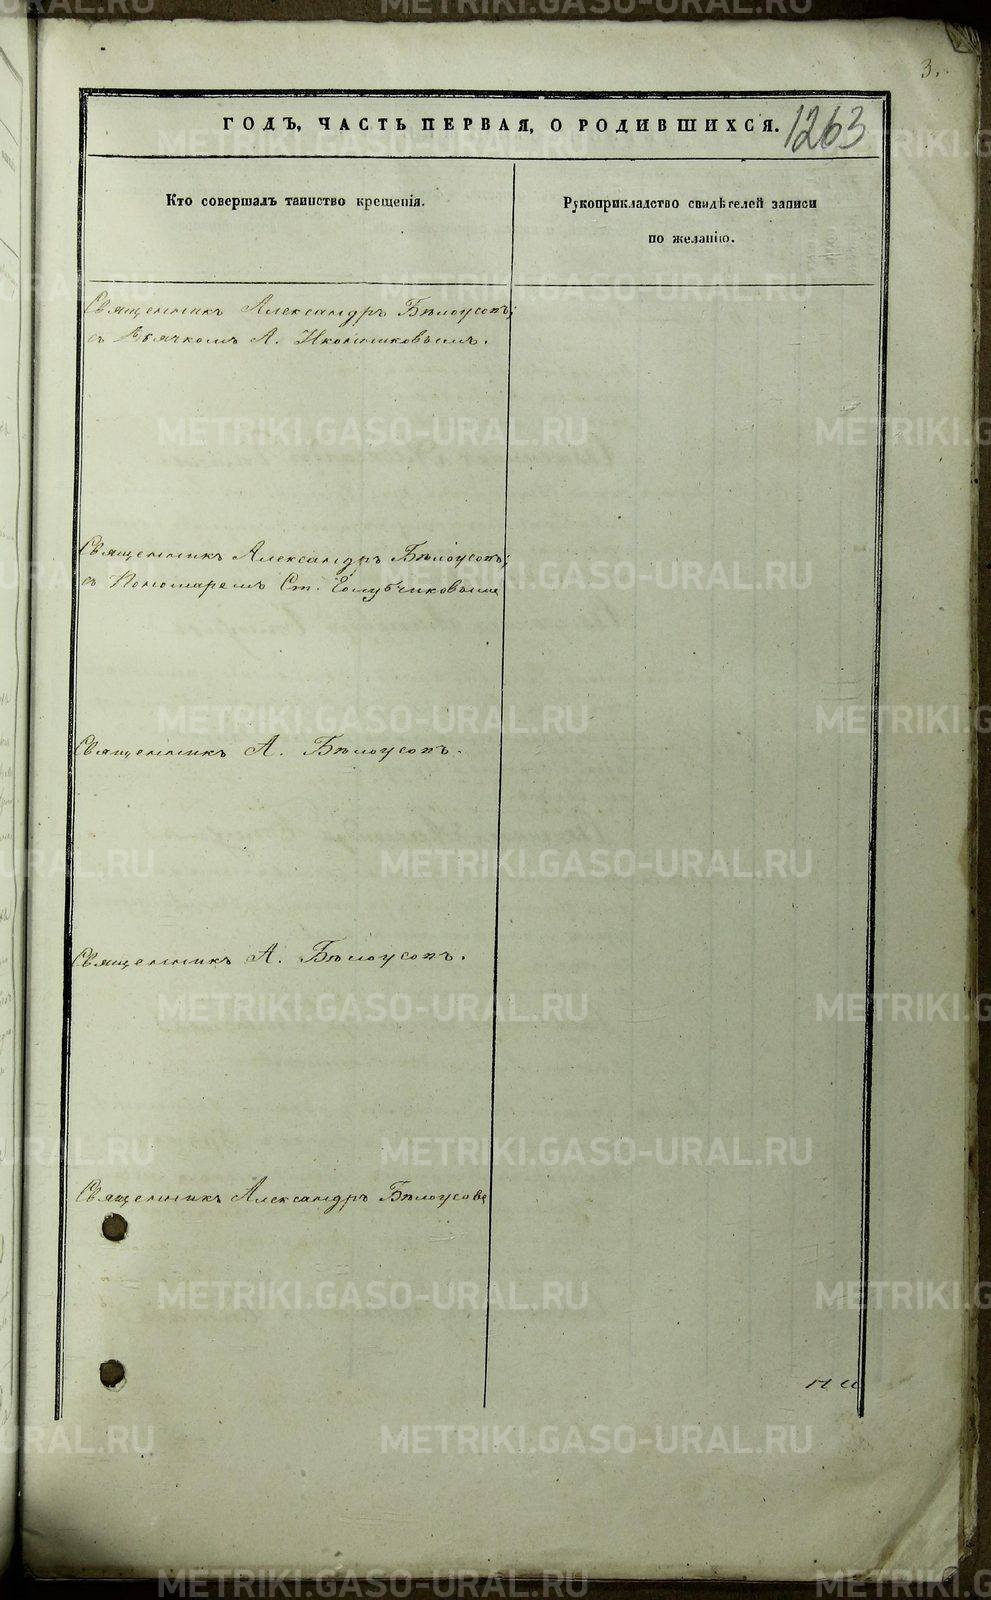 3.
ГОДЪ, ЧАСТЬ ПЕРВАЯ, О РОДИВШИХСЯ.
1263
Кто совершалъ таинство крещенія.
Рукоприкладство свидѣтелей записи
по желанію.
Священникъ Александръ Бѣлоусовъ,
съ Дьячкомъ А. Иконниковымъ.
Священникъ Александръ Бѣлоусовъ,
съ Пономаремъ Ст. Голубчиковымъ
Священникъ А. Бѣлоусовъ.
Священникъ А. Бѣлоусовъ.
Священникъ Александръ Бѣлоусовъ
METRIKI.GASO-URAL.RU